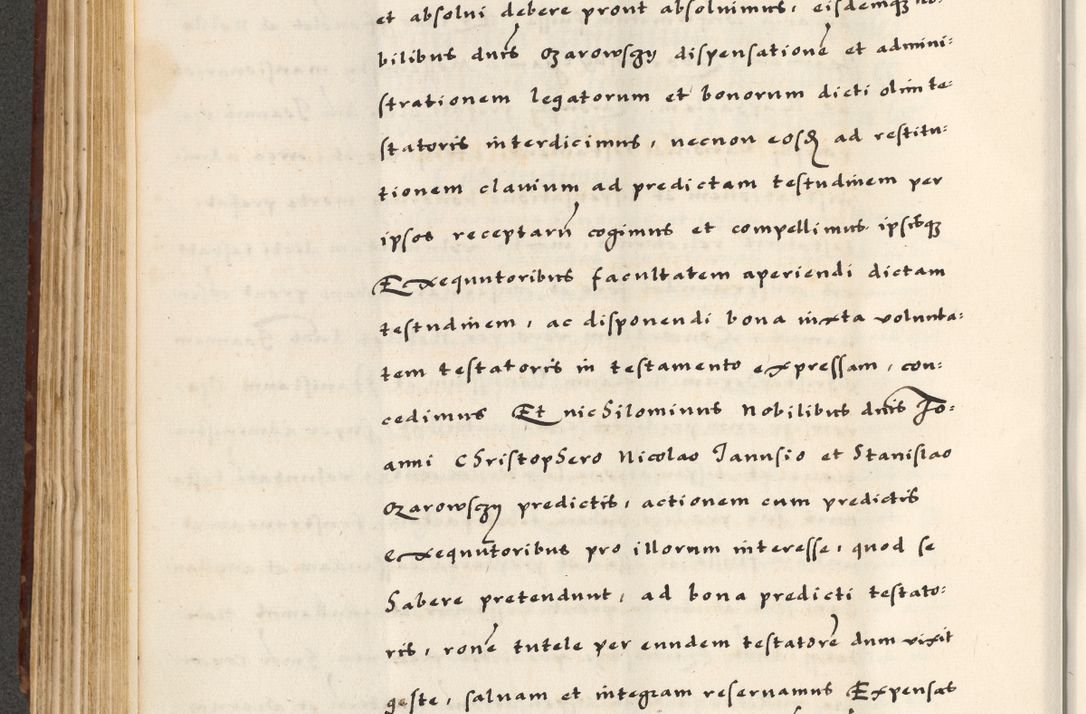 et absolui debere prout absoluimus, eisdemq3 no:
bilibus dnis Ozarowsczy dispensationē et admini:
strationem legatorum et bonorum dicti olim te:
statoris interdicimus, necnon eosd ad restitu:
tionem clauium ad predictam testudinem per
ipsos receptarū cogimus et compellimus ipsisq3
Exequutoribus facultatem aperiendi dictam
testudinem, ac disponendi bona iuxta volunta:
tem testatoris in testamento expressam, con:
cedimus Et nichilominus Nobilibus dnis Jo:
anni Christophero Nicolao Janusio et Stanislao
Ozarowsczy predictis, actionem cum predictis
exequutoribus pro illorum interesse, quod se
habere pretendunt, ad bona predicti testato:
ris, ronē tutele per eundem testatorē dum vixit
geste, saluam et integram reseruamus Expensas